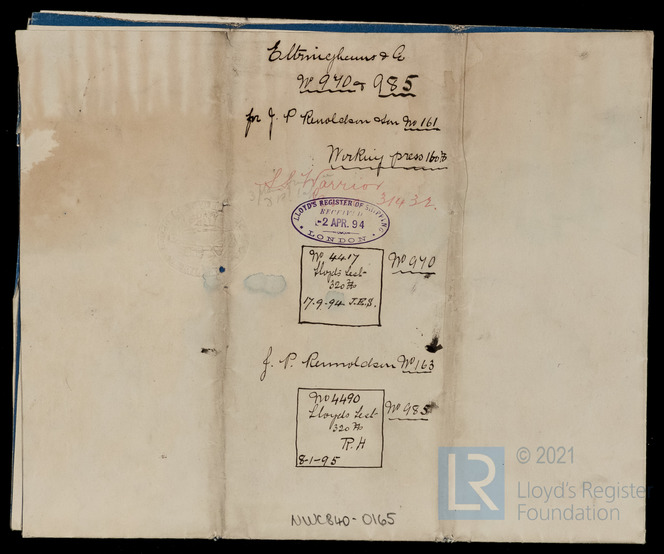 Eltringhams & Co
No 970 & 985
for J. P. Renoldson & Son No 161
Working press 160 lb
S.S. Warrior
31432
LLOYD'S REGISTER OF SHIPPING
RECEIVED
-2 APR. 94
LONDON
No 4417
Lloyds Test
320 lb
17.9.94 J.E.S.
No 970
J. P. Rennoldson No 163
No 4490
Lloyds Test
320 lb
R.H
8-1-95
No 985
NWC840-0165
LR
© 2021
Lloyd's Register
Foundation